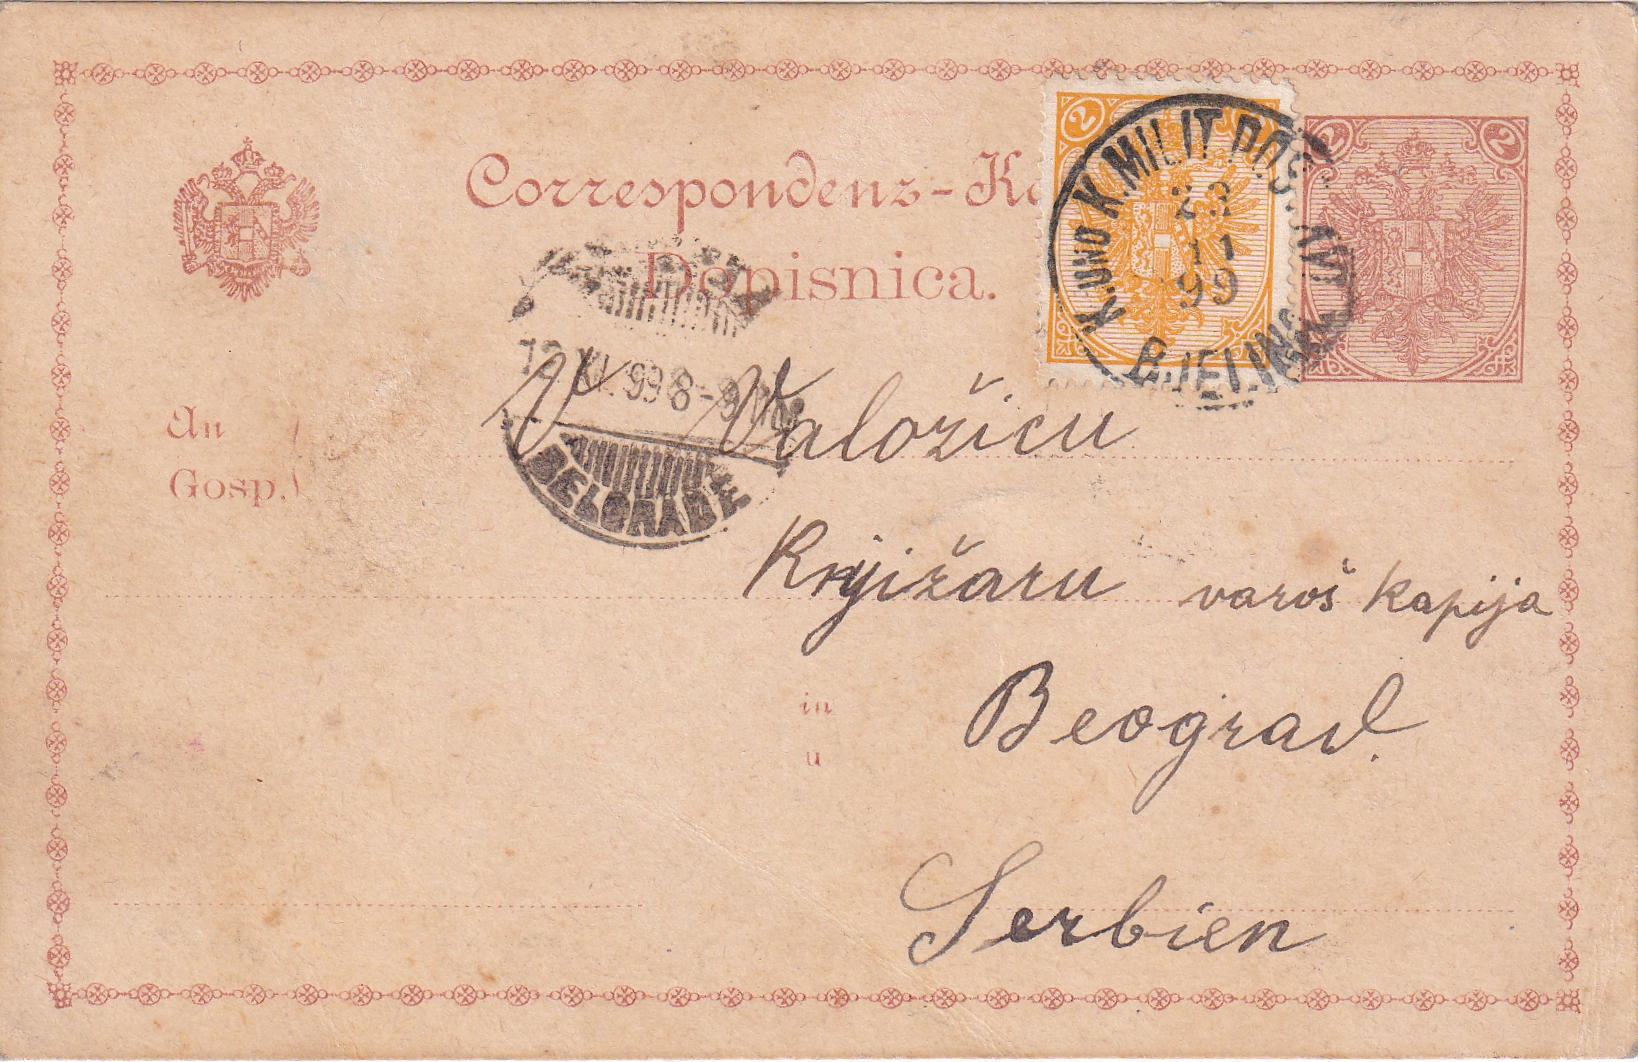 Correspondenz-Ka
Dopisnica.
2
2
2
K. UND K. MILIT. POST
BJELINA
11
99
XI. 99 8-9
BELGRADE
An
Gosp.
V. Valožicu
Knjižaru varoš kapija
in
u
Beograd.
Serbien